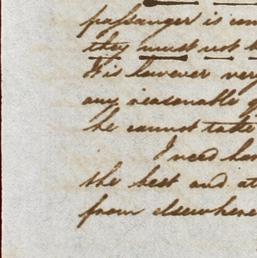 passanger is
they must not
It is however very
any reasonable
he cannot take
I need
the best and at
from elsewhere